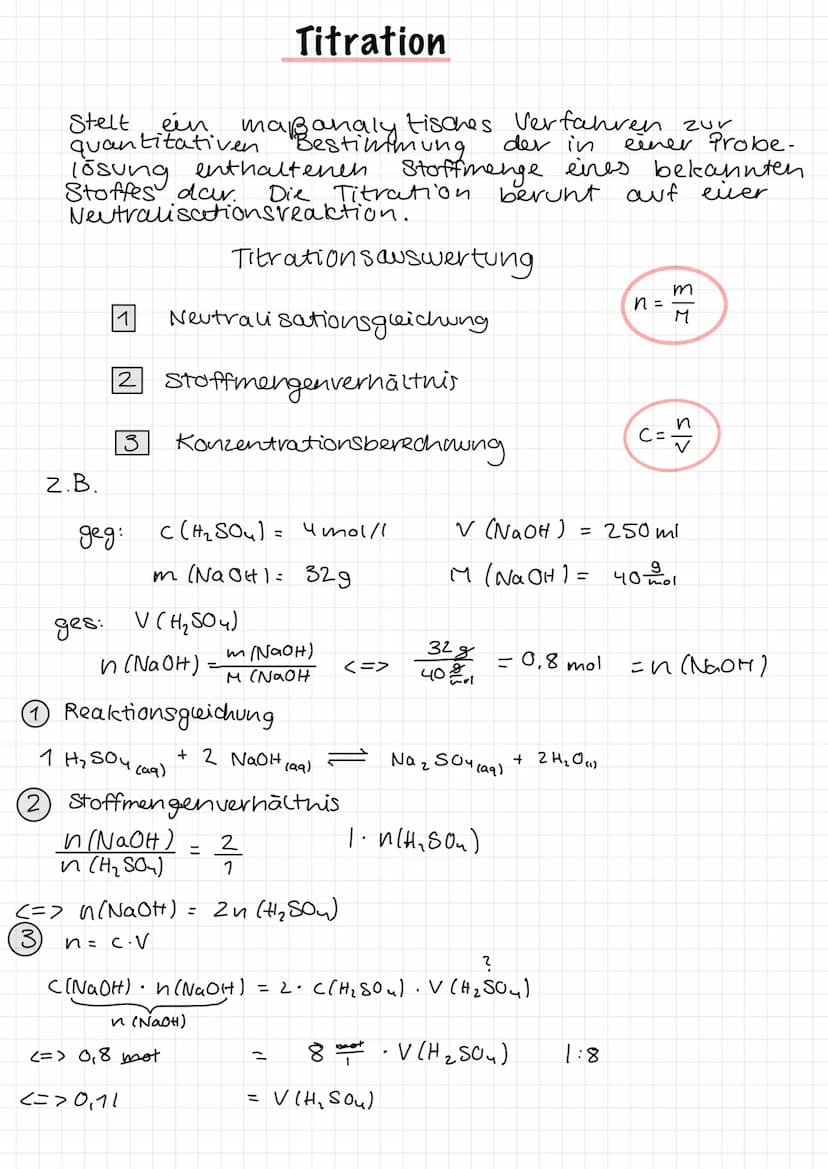 Titration
Stelt ein maßanalytisches Verfahren zur
quantitativen Bestimmung der in einer Probe-
lösung enthaltenen Stoffmenge eines bekannten
Stoffes dar. Die Titration beruht auf einer
Neutralisationsreaktion.
Titrationsauswertung
n = m/M
1 Neutralisationsgleichung
2 Stoffmengenverhältnis
3 Konzentrationsberechnung
c = n/V
z.B.
geg: C(H₂SO₄) = 4mol/l V (NaOH) = 250ml
m (NaOH) = 32g M (NaOH) = 40 g/mol
ges: V(H₂SO₄)
n(NaOH) = m(NaOH)/M (NaOH <=> 32g/40 g/mol = 0,8 mol = n(NaOH)
1 Reaktionsgleichung
1 H₂SO₄(aq) + 2 NaOH(aq) ⇌ Na₂SO₄(aq) + 2H₂O(l)
2 Stoffmengenverhältnis
n(NaOH)/n(H₂SO₄) = 2/1 |· n(H₂SO₄)
<=> n(NaOH) = 2n(H₂SO₄)
3 n = c·V
?
C(NaOH) · n(NaOH) = 2· C(H₂SO₄) · V(H₂SO₄)
n (NaOH)
<=> 0,8 mol = 8 mol/l · V(H₂SO₄) |:8
<=> 0,1l = V(H₂SO₄)